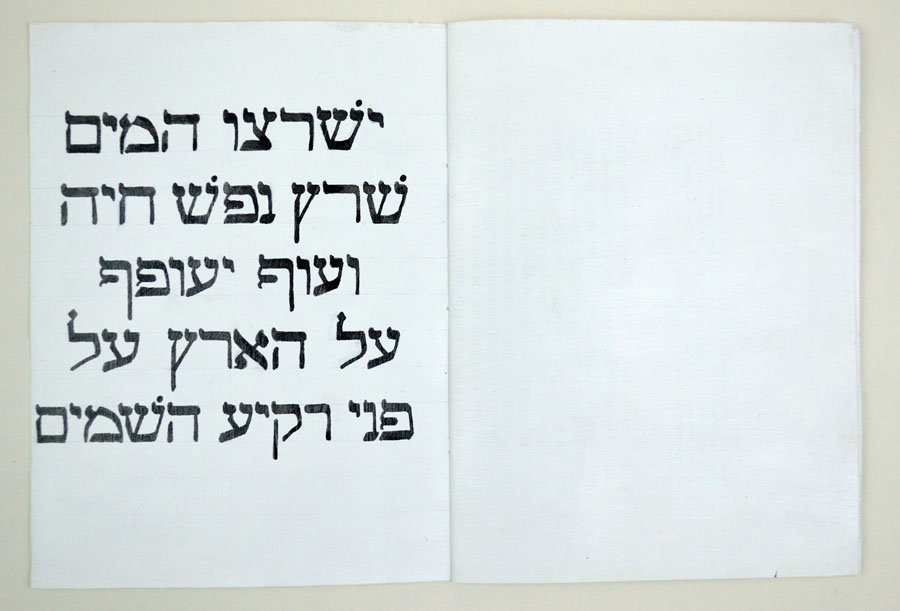 ישׁרצו המים
שׁרץ נפשׁ חיה
ועוף יעופף
על הארץ על
פני רקיע השׁמים